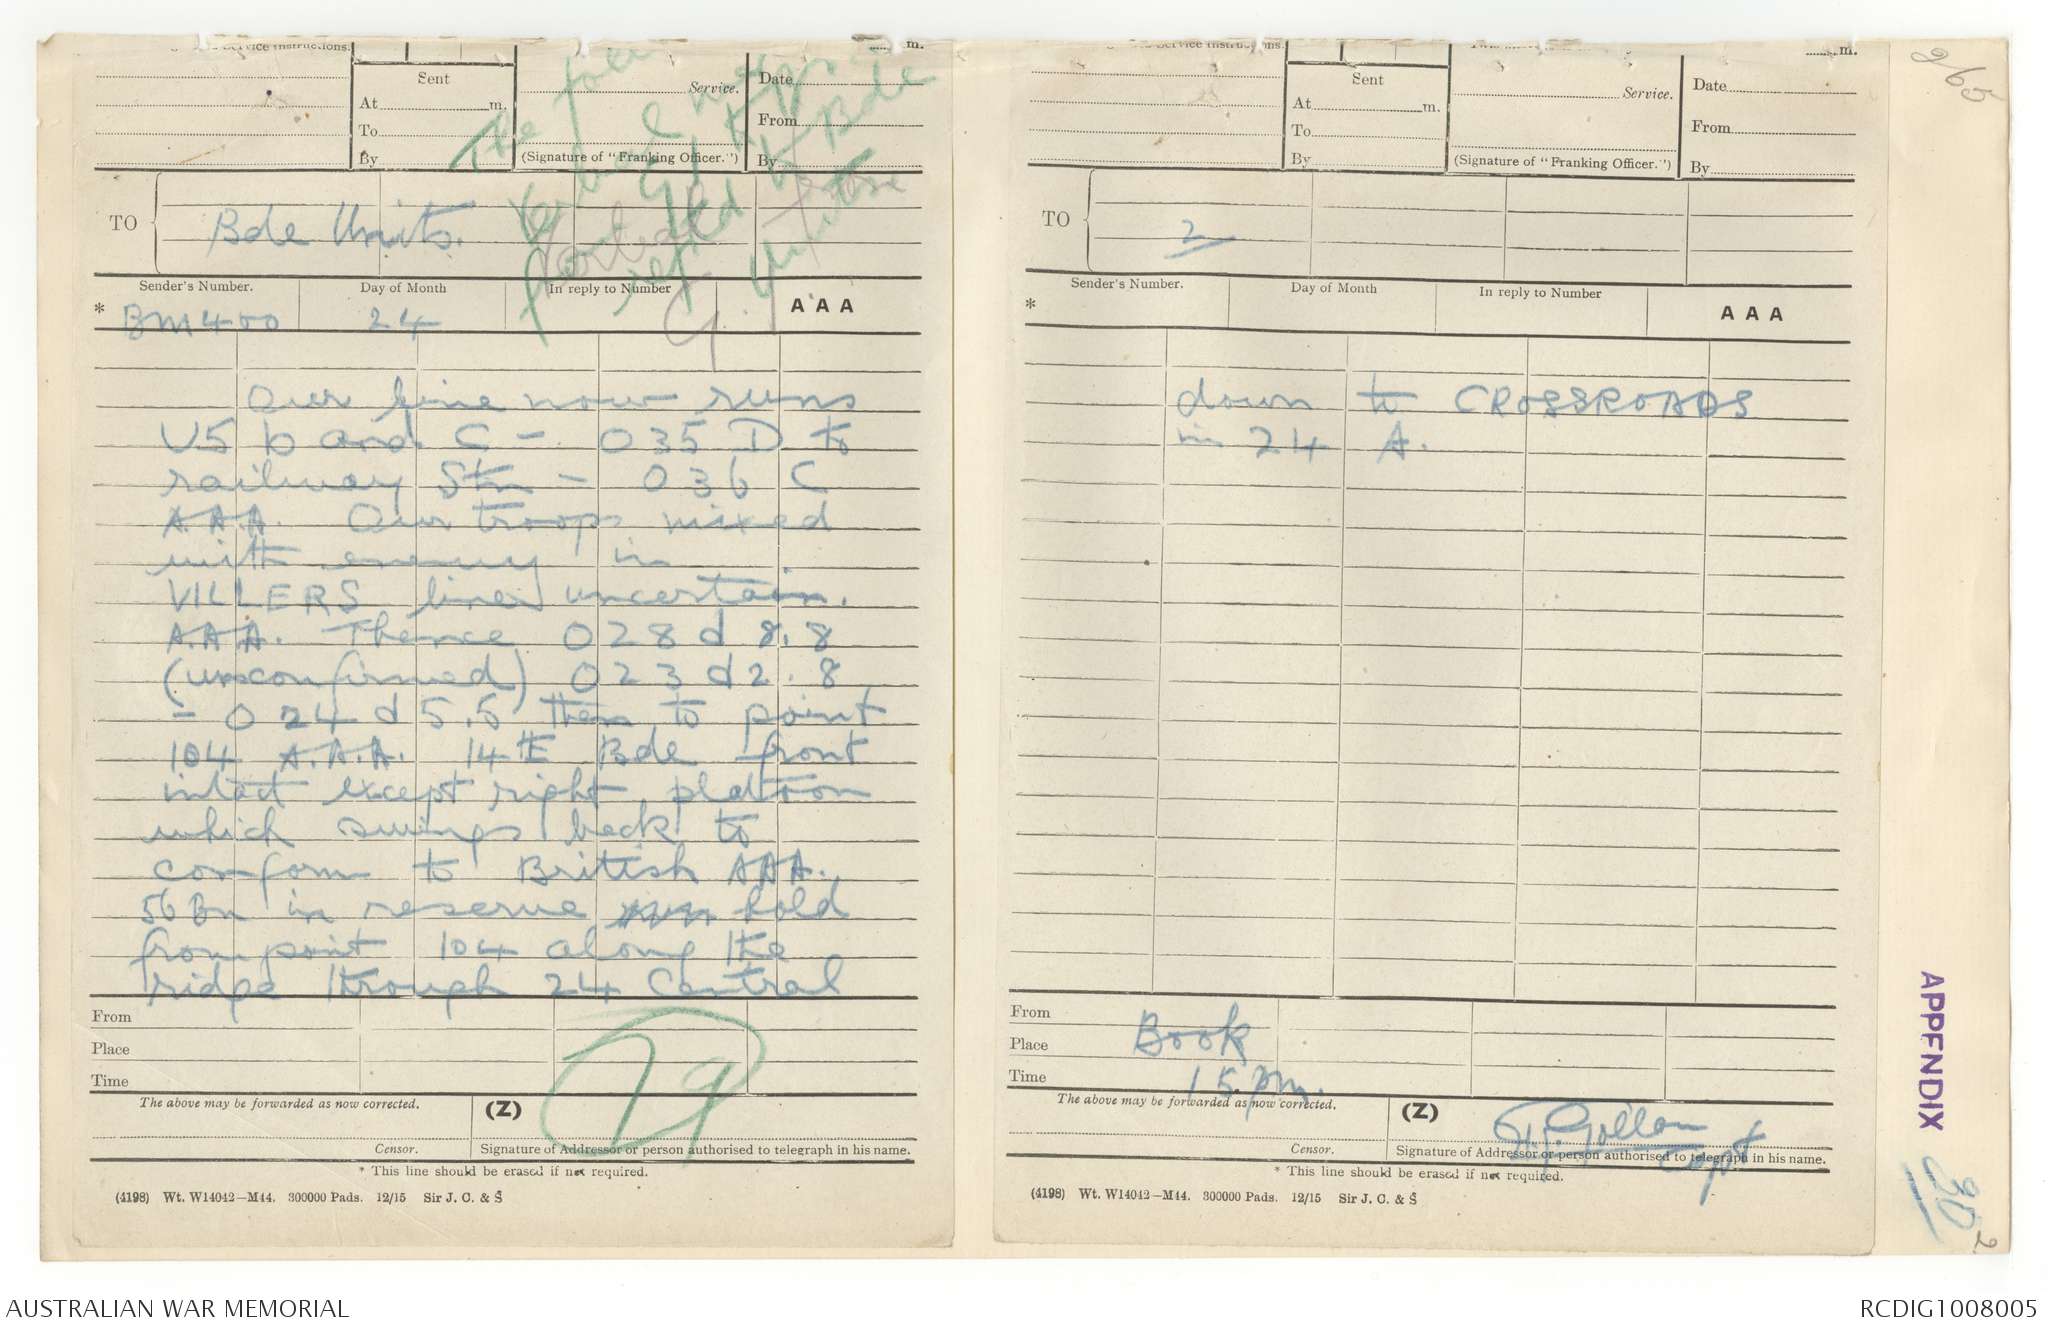 Service Instructions.
m.
Sent
At m.
To
By
Service.
(Signature of "Franking Officer.")
Date
From
By
The
by Bde
TO
Bde Units.
Sender's Number.
Day of Month
In reply to Number
AAA
*
BM400
24
Our line now runs
U5 b and C - O35 D to
railway Stn - O36 C
A.A.A. Our troops mixed
with enemy in
VILLERS line uncertain.
A.A.A. Thence O28 d 8.8
(unconfirmed) O23 d 2.8
- O24 d 5.5 thence to point
104 A.A.A. 14TH Bde front
intact except right platoon
which swings back to
conform to British AAA.
56 Bn in reserve hold
from point 104 along the
ridge through 24 Central
From
Place
Time
29
The above may be forwarded as now corrected.
(Z)
Censor.
Signature of Addressor or person authorised to telegraph in his name.
* This line should be erased if not required.
(4198) Wt. W14042-M44. 300000 Pads. 12/15 Sir J. C. & S
Service Instructions.
m.
Sent
At m.
To
By
Service.
(Signature of "Franking Officer.")
Date
From
By
TO
2
Sender's Number.
Day of Month
In reply to Number
AAA
*
down to CROSSROADS
in 24 A.
From
Place
Time
Book
15 pm.
The above may be forwarded as now corrected.
(Z)
Gollan
Capt
Censor.
Signature of Addressor or person authorised to telegraph in his name.
* This line should be erased if not required.
(4198) Wt. W14042-M44. 300000 Pads. 12/15 Sir J. C. & S
APPENDIX 30
2
AUSTRALIAN WAR MEMORIAL
RCDIG1008005